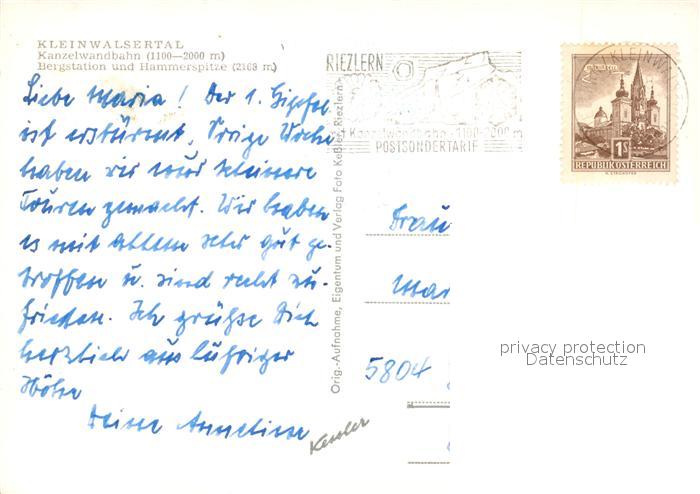 KLEINWALSERTAL
Kanzelwandbahn (1100—2000 m)
Bergstation und Hammerspitze (2168 m)
Liebe Maria! Der 1. Gipfel
ist erstürmt, Vorige Woche
haben wir nur kleinere
Touren gemacht. Wir haben
es mit allem sehr gut ge-
troffen u. sind recht zu-
frieden. Ich grüße Dich
herzlich aus luftiger
Höhe
Deine Anneliese
Kessler
Orig.-Aufnahme, Eigentum und Verlag Foto Keßler, Riezlern
RIEZLERN
Kanzelwandbahn-1100-2000 m
POSTSONDERTARIF
KLEINW
1S
REPUBLIK ÖSTERREICH
Frau
Mar
5804
privacy protection
Datenschutz